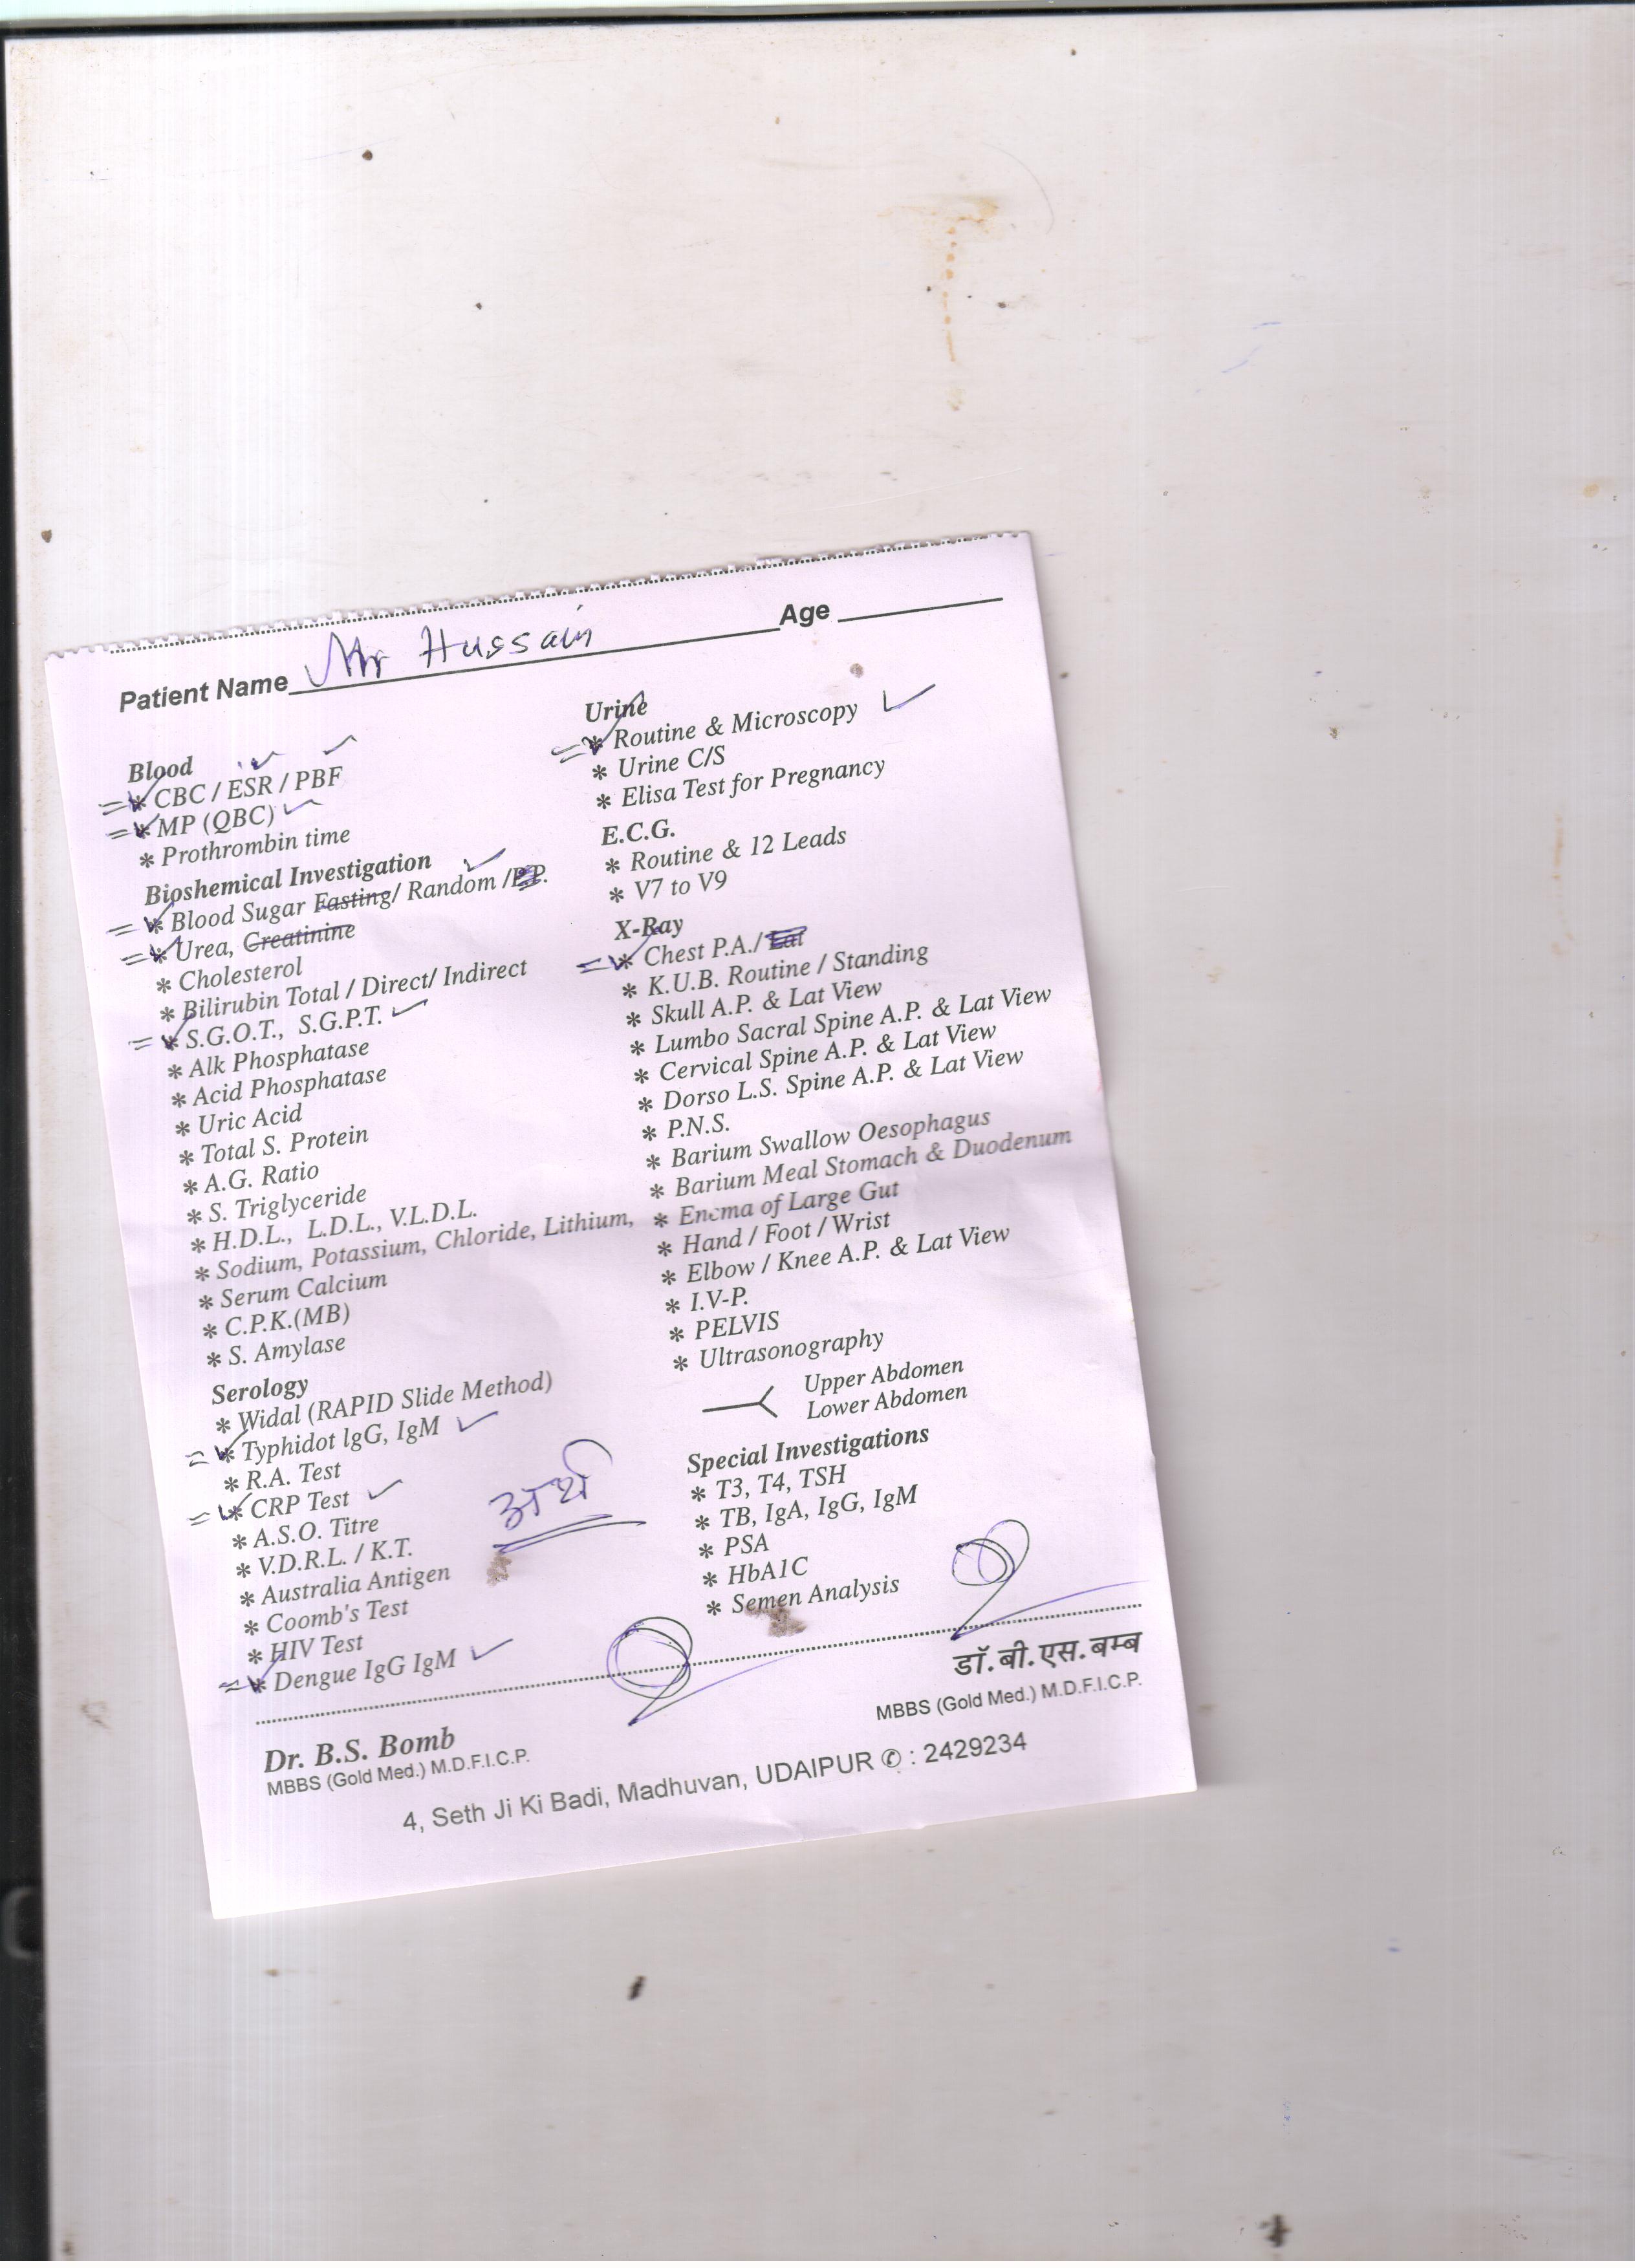 Patient Name Mr Hussain Age
Blood
* CBC / ESR / PBF
* MP (QBC)
* Prothrombin time
Bioshemical Investigation
* Blood Sugar Fasting/ Random /P.P.
* Urea, Creatinine
* Cholesterol
* Bilirubin Total / Direct/ Indirect
* S.G.O.T., S.G.P.T.
* Alk Phosphatase
* Acid Phosphatase
* Uric Acid
* Total S. Protein
* A.G. Ratio
* S. Triglyceride
* H.D.L., L.D.L., V.L.D.L.
* Sodium, Potassium, Chloride, Lithium,
* Serum Calcium
* C.P.K.(MB)
* S. Amylase
Serology
* Widal (RAPID Slide Method)
* Typhidot lgG, IgM
* R.A. Test
* CRP Test
* A.S.O. Titre
* V.D.R.L. / K.T.
* Australia Antigen
* Coomb's Test
* HIV Test
* Dengue IgG IgM
Urine
* Routine & Microscopy
* Urine C/S
* Elisa Test for Pregnancy
E.C.G.
* Routine & 12 Leads
* V7 to V9
X-Ray
* Chest P.A./ Lat
* K.U.B. Routine / Standing
* Skull A.P. & Lat View
* Lumbo Sacral Spine A.P. & Lat View
* Cervical Spine A.P. & Lat View
* Dorso L.S. Spine A.P. & Lat View
* P.N.S.
* Barium Swallow Oesophagus
* Barium Meal Stomach & Duodenum
* Enema of Large Gut
* Hand / Foot / Wrist
* Elbow / Knee A.P. & Lat View
* I.V-P.
* PELVIS
* Ultrasonography
Upper Abdomen
Lower Abdomen
Special Investigations
* T3, T4, TSH
* TB, IgA, IgG, IgM
* PSA
* HbA1C
* Semen Analysis
Dr. B.S. Bomb
MBBS (Gold Med.) M.D.F.I.C.P.
डॉ. बी. एस. बम्ब
MBBS (Gold Med.) M.D.F.I.C.P.
4, Seth Ji Ki Badi, Madhuvan, UDAIPUR ✆ : 2429234